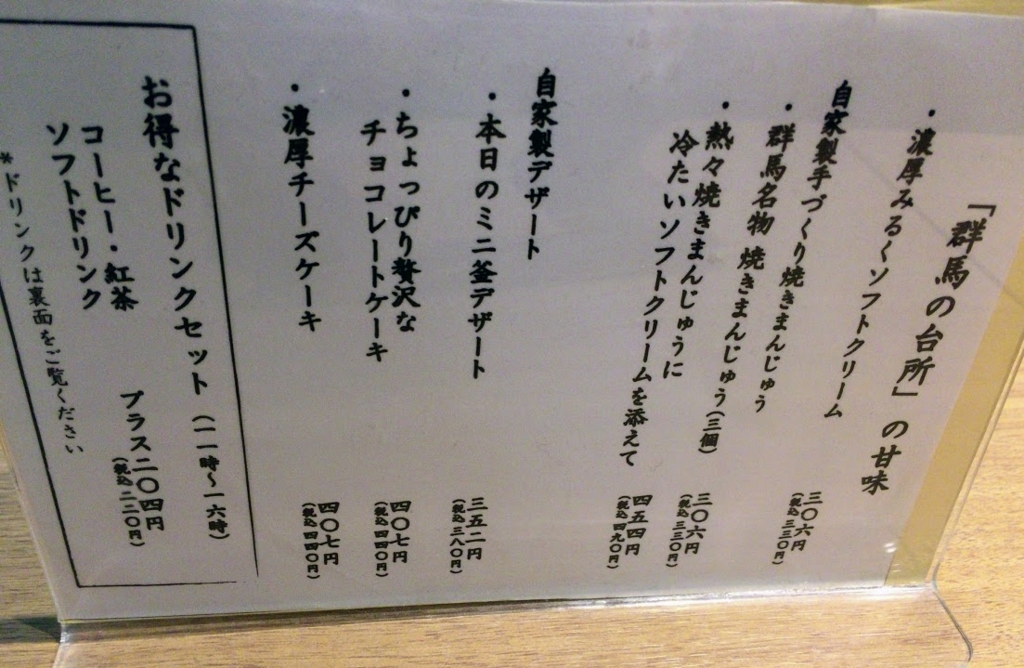 「群馬の台所」の甘味
・濃厚みるくソフトクリーム
三〇六円
(税込三三〇円)
自家製手づくり焼きまんじゅう
・群馬名物 焼きまんじゅう(三個)
三〇六円
(税込三三〇円)
・熱々焼きまんじゅうに
冷たいソフトクリームを添えて
四五四円
(税込四九〇円)
自家製デザート
・本日のミニ釜デザート
三五二円
(税込三八〇円)
・ちょっぴり贅沢な
チョコレートケーキ
四〇七円
(税込四四〇円)
・濃厚チーズケーキ
四〇七円
(税込四四〇円)
お得なドリンクセット(一一時〜一六時)
コーヒー・紅茶
ソフトドリンク
プラス二〇四円
(税込二二〇円)
*ドリンクは裏面をご覧ください